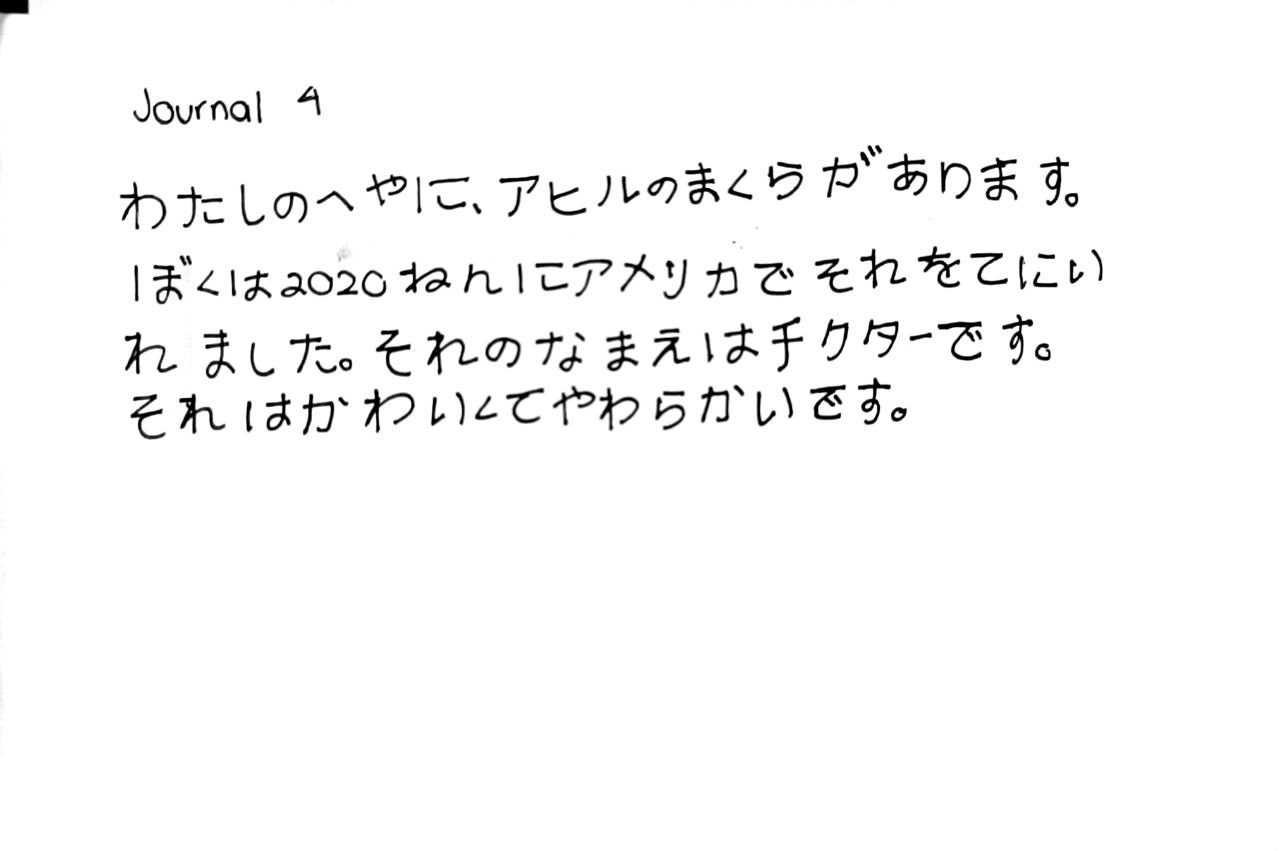 Journal 4
わたしのへやに、アヒルのまくらがあります。
ぼくは2020ねんにアメリカでそれをてにい
れました。それのなまえはチクターです。
それはかわいくてやわらかいです。